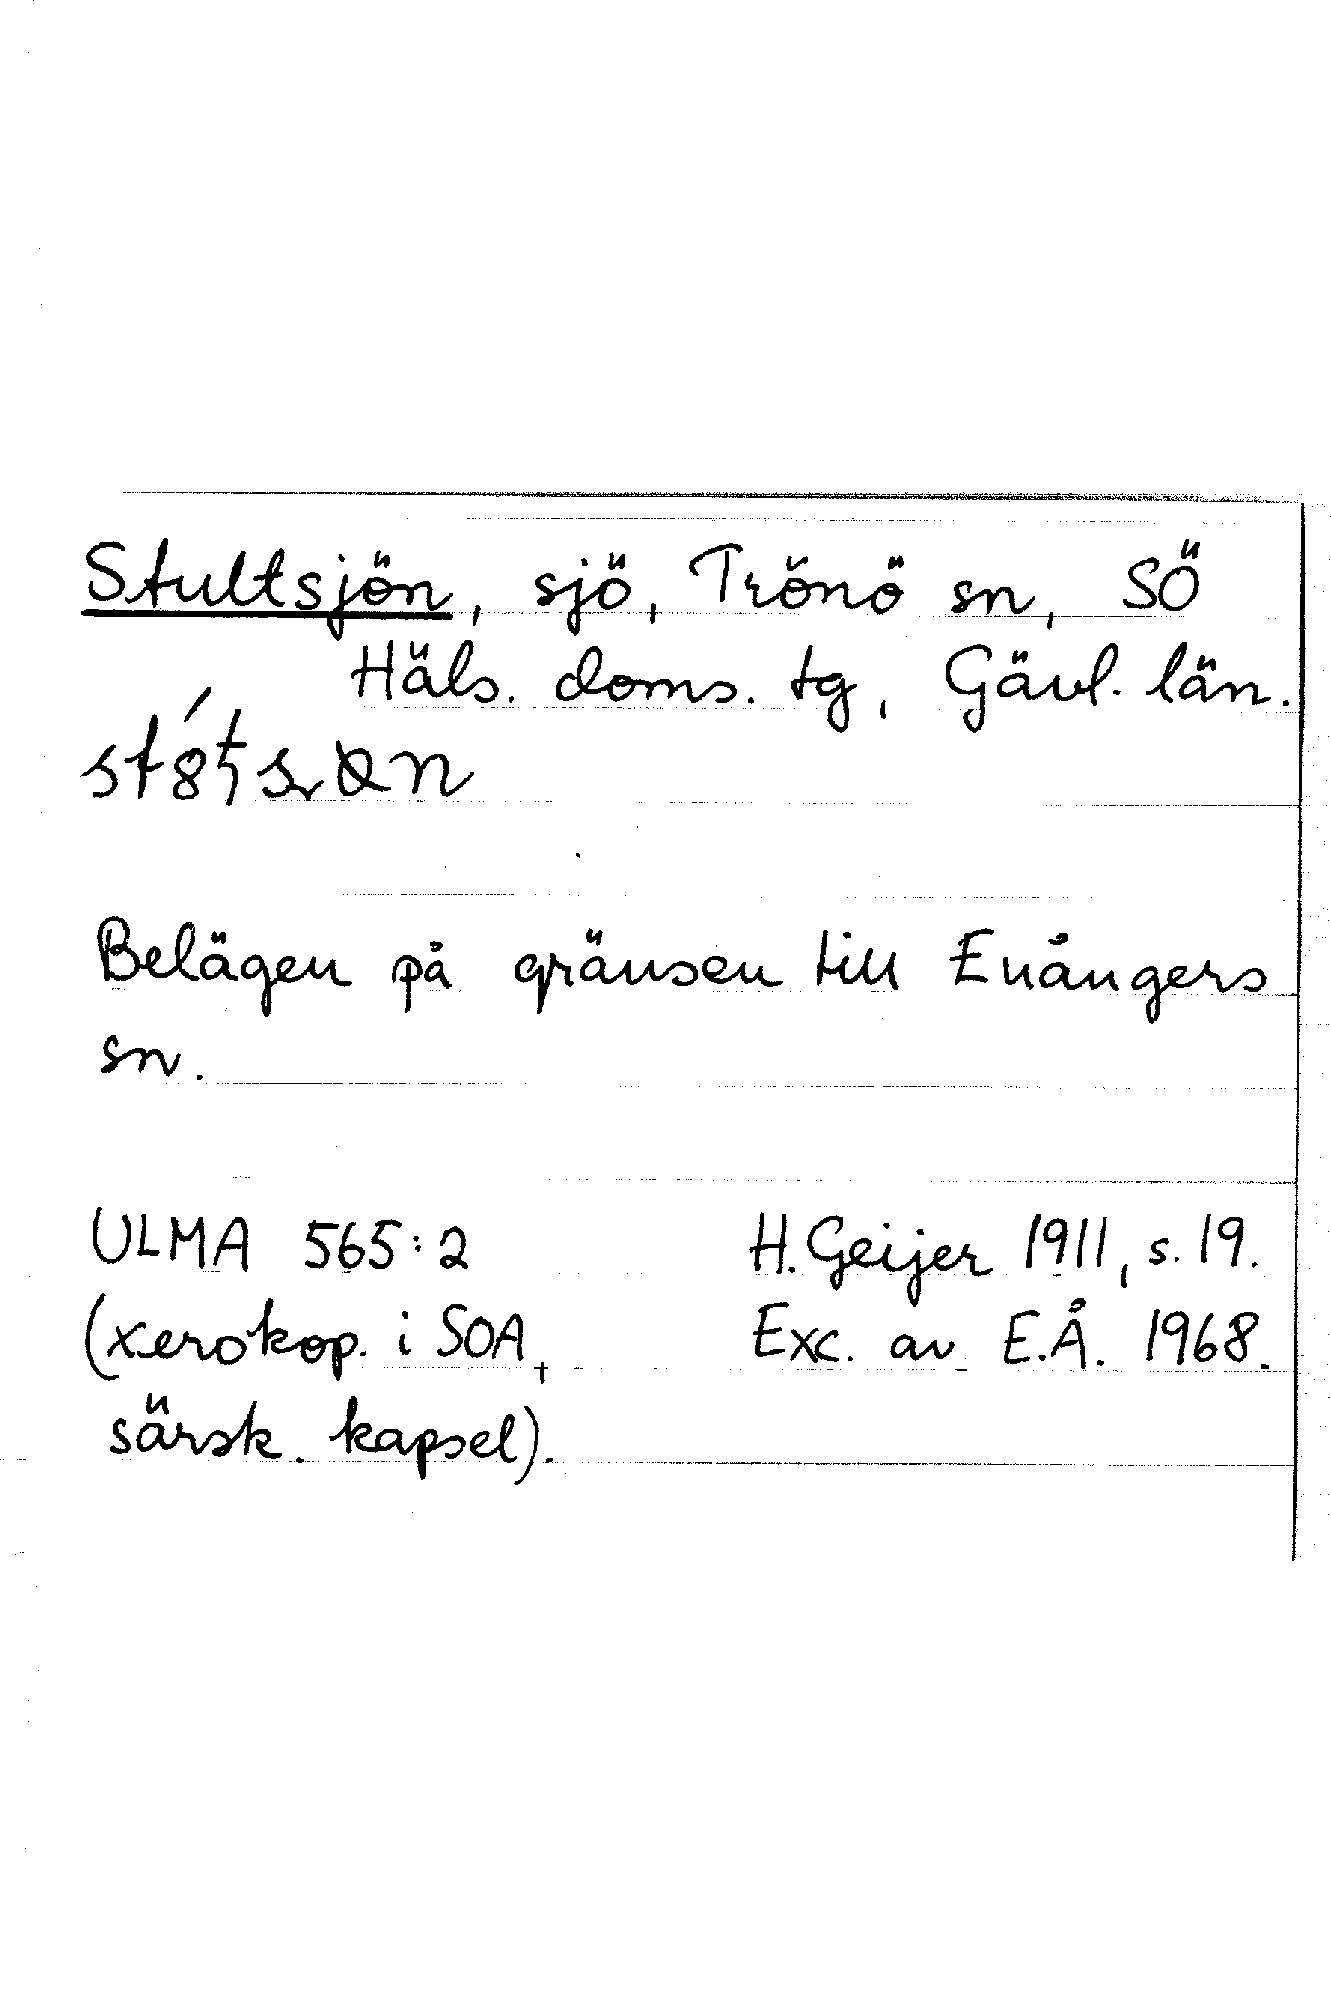 Stultsjön, sjö, Trönö sn, SÖ
Häls. doms. tg, Gävl. län.
Belägen på gränsen till Enångers
sn.
ULMA 565:2 H. Geijer 1911, s. 19.
(xerokop. i SOA, Exc. av E.Å. 1968.
särsk. kapsel).